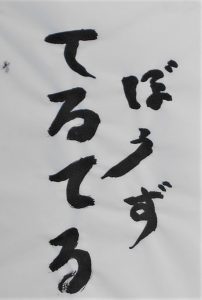 てるてる
ぼうず